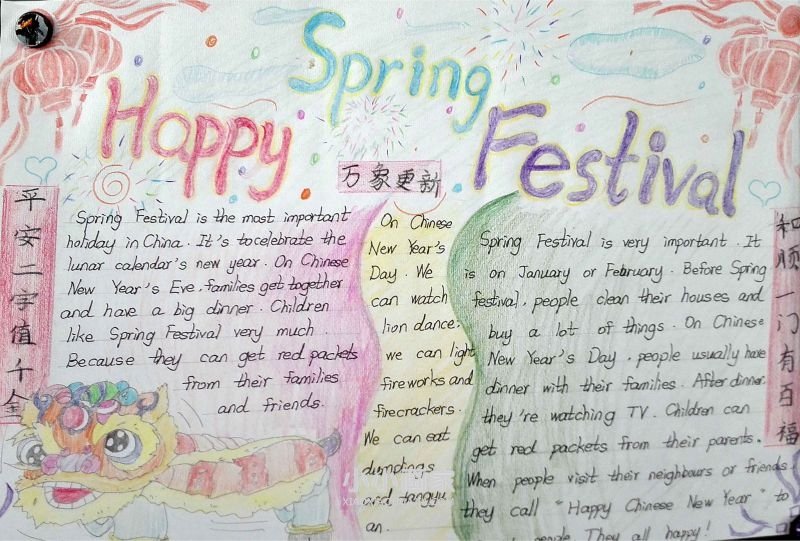 Happy Spring Festival
万象更新
平安二字值千金
和顺一门有百福
Spring Festival is the most important
holiday in China. It's to celebrate the
lunar calendar's new year. On Chinese
New Year's Eve, families get together
and have a big dinner. Children
like Spring Festival very much.
Because they can get red packets
from their families
and friends.
On Chinese
New Year's
Day. We
can watch
lion dance;
we can light
fireworks and
firecrackers.
We can eat
dumplings
and tangyu
an.
Spring Festival is very important. It
is on January or February. Before Spring
festival, people clean their houses and
buy a lot of things. On Chinese
New Year's Day, people usually have
dinner with their families. After dinner.
they're watching TV. Children can
get red packets from their parents.
When people visit their neighbours or friends.
they call "Happy Chinese New Year" to
people. They all happy!